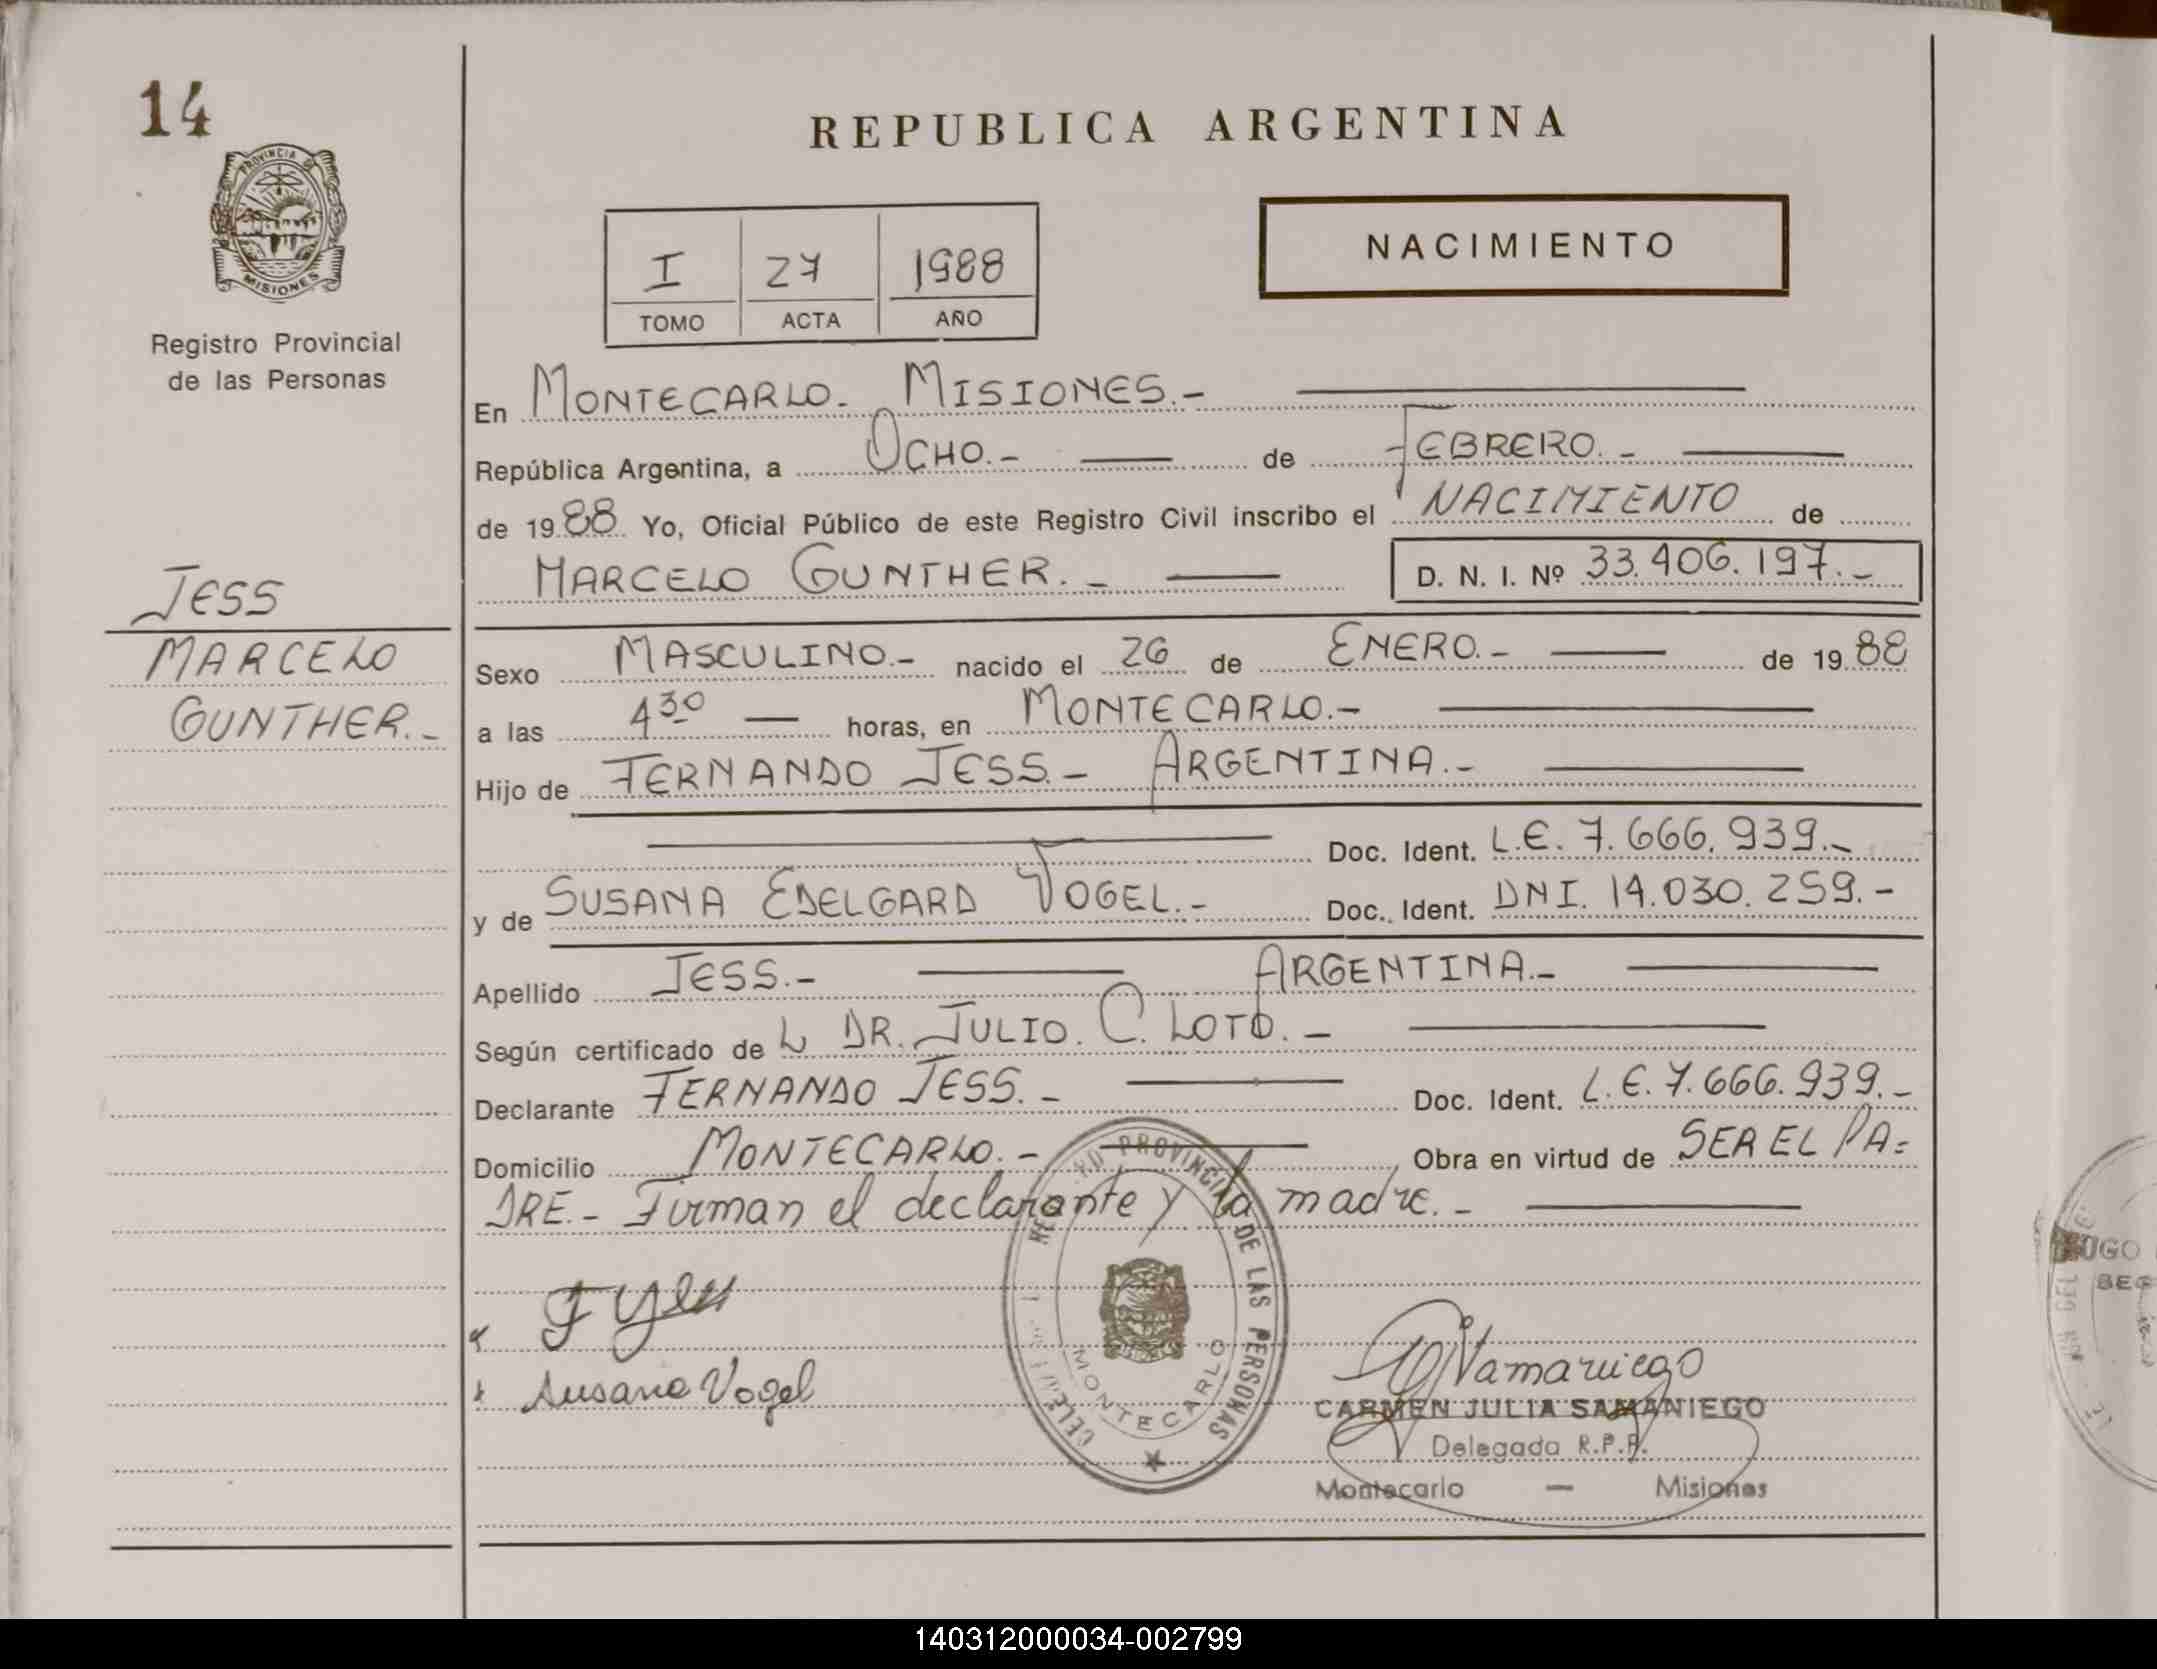 14
REPUBLICA ARGENTINA
PROVINCIA DE
MISIONES
Registro Provincial
de las Personas
NACIMIENTO
I 27 1988
TOMO ACTA AÑO
En MONTECARLO. MISIONES.-
República Argentina, a OCHO.- de FEBRERO.-
de 1988 Yo, Oficial Público de este Registro Civil inscribo el NACIMIENTO de
MARCELO GUNTHER.- D. N. I. Nº 33.406.197.-
JESS
MARCELO
GUNTHER.-
Sexo MASCULINO.- nacido el 26 de ENERO.- de 1988
a las 4 30 horas, en MONTECARLO.-
Hijo de FERNANDO JESS.- ARGENTINA.-
Doc. Ident. L.E. 7.666.939.-
y de SUSANA EDELGARD VOGEL.- Doc. Ident. DNI. 14.030.259.-
Apellido JESS.- ARGENTINA.-
Según certificado de L DR. JULIO. C. LOTO.-
Declarante FERNANDO JESS.- Doc. Ident. L.E. 7.666.939.-
Domicilio MONTECARLO.- Obra en virtud de SER EL PA=
DRE.- Firman el declarante y la madre.-
PROVINCIAL DE LAS PERSONAS
MONTECARLO
Susana Vogel
CARMEN JULIA SAMANIEGO
Delegada R.P.P.
Montecarlo — Misiones
140312000034-002799